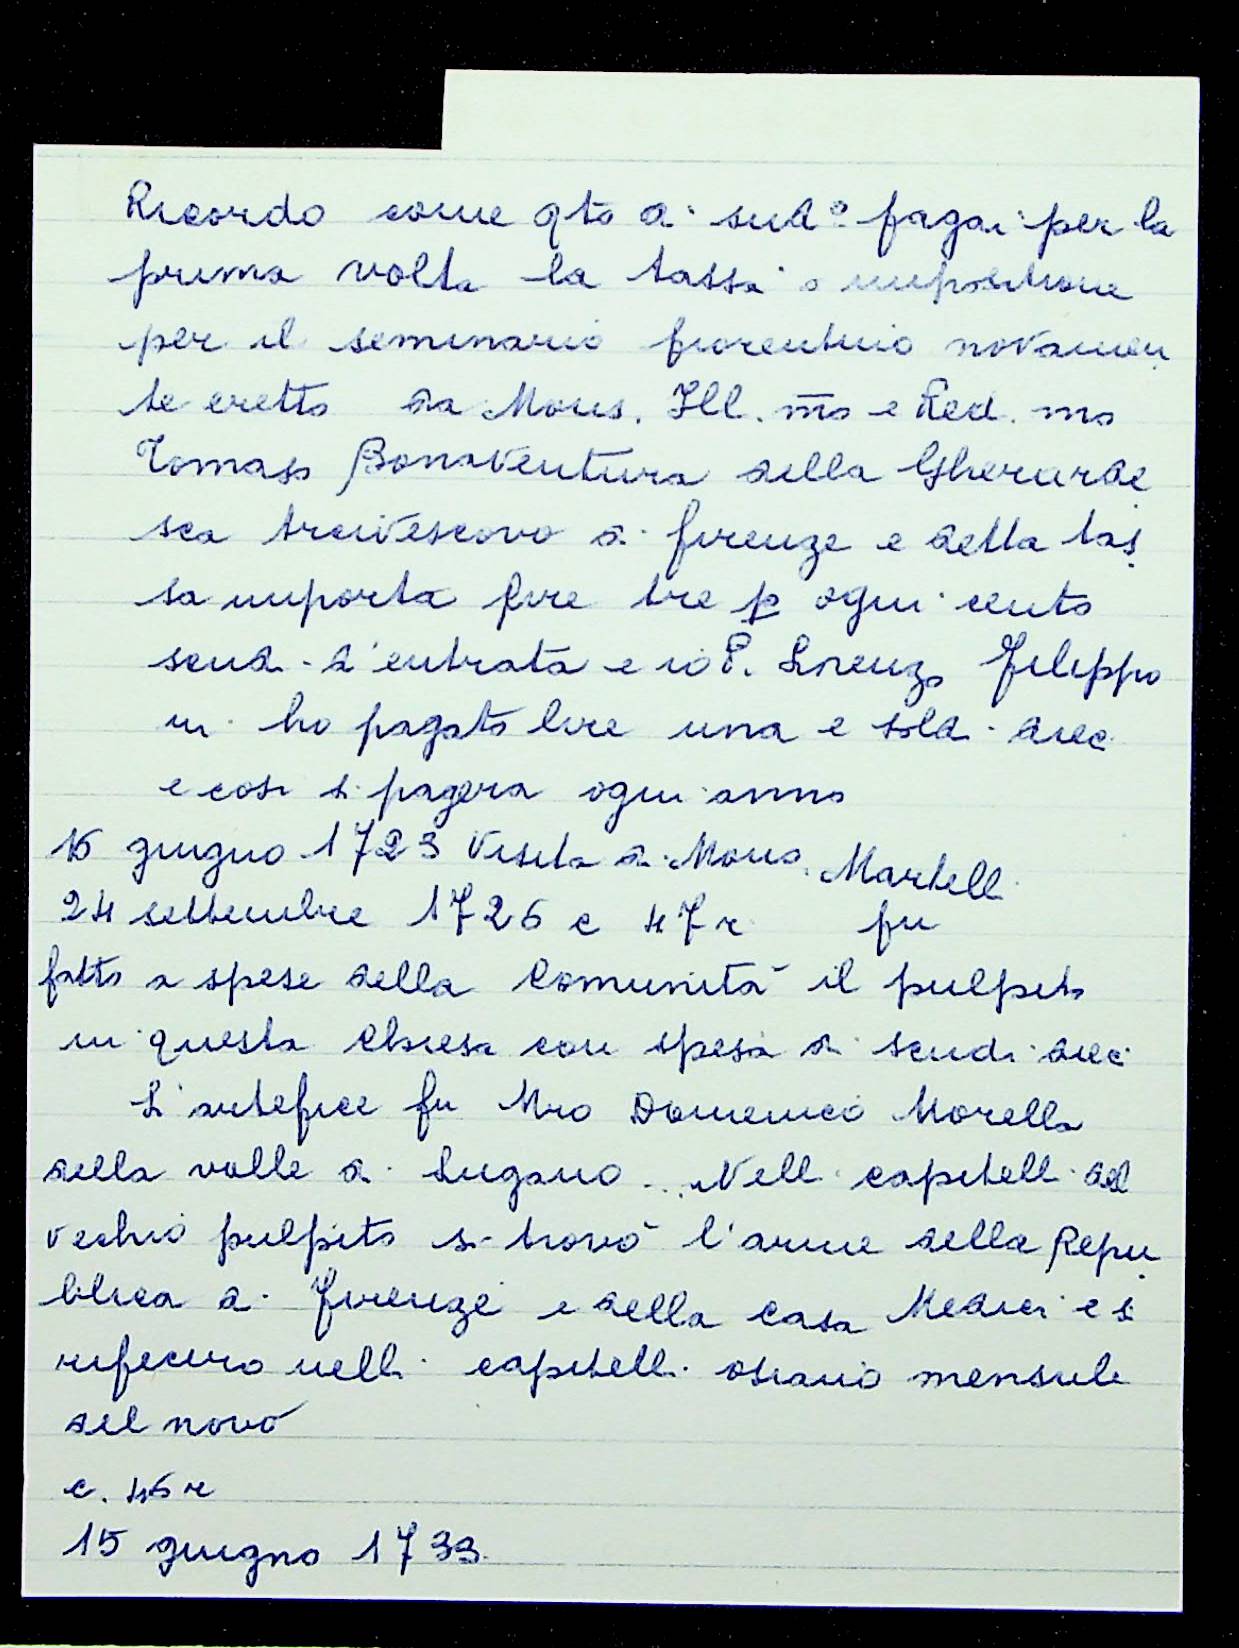 Ricordo come qto dì sudº pagai per la
prima volta la tassa o impositione
per il seminario fiorentino novamen
te eretto da Mons. Ill. mo e Red. mo
Tomaso Bonaventura della Gherarde
sca Arcivescovo di Firenze e detta tas
sa importa lire tre p ogni cento
scudi d'entrata e io P. Lorenzo Filippo
ni ho pagato lire una e soldi dieci
e così si pagera ogni anno
16 giugno 1723 Visita di Mons. Martelli
24 settembre 1726 c 47r fu
fatto a spese della Comunità il pulpito
in questa Chiesa con spesa di scudi dieci
L'artefice fu Mro Domenico Morella
della valle di Lugano... Nelli capitelli del
vechio pulpito si trovò l'arme della Repu
blica di Firenze e della casa Medici e si
rifeciro nelli capitelli osiano mensuli
del novo
c. 46r
15 giugno 1733